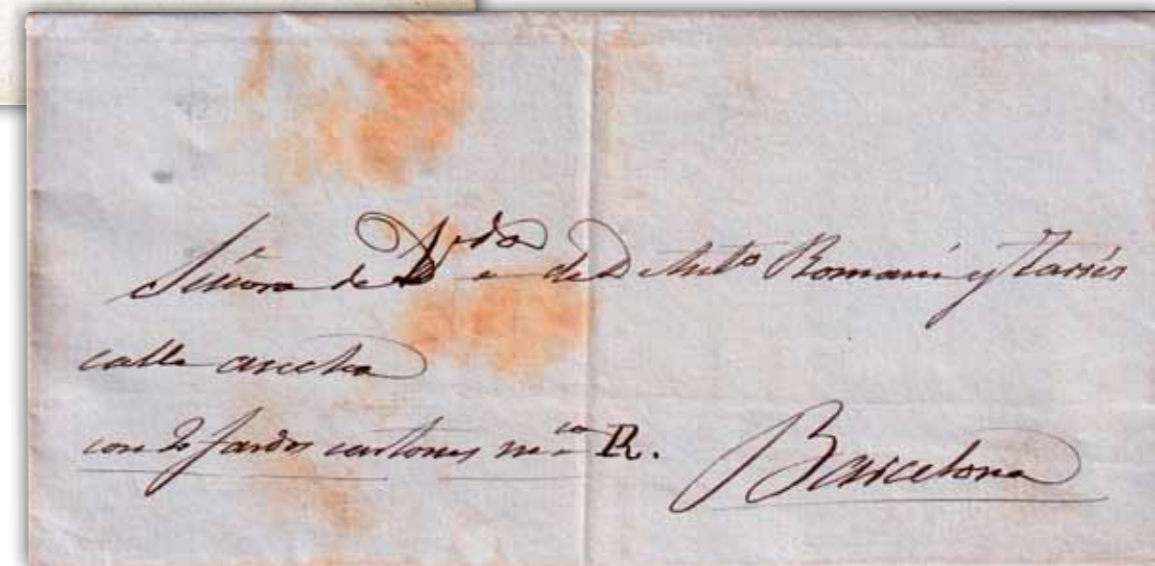 Señora de Vda de D Anto Romaní y Tarrés
calle ancha
con 2 fardos cartones mca R.
Barcelona